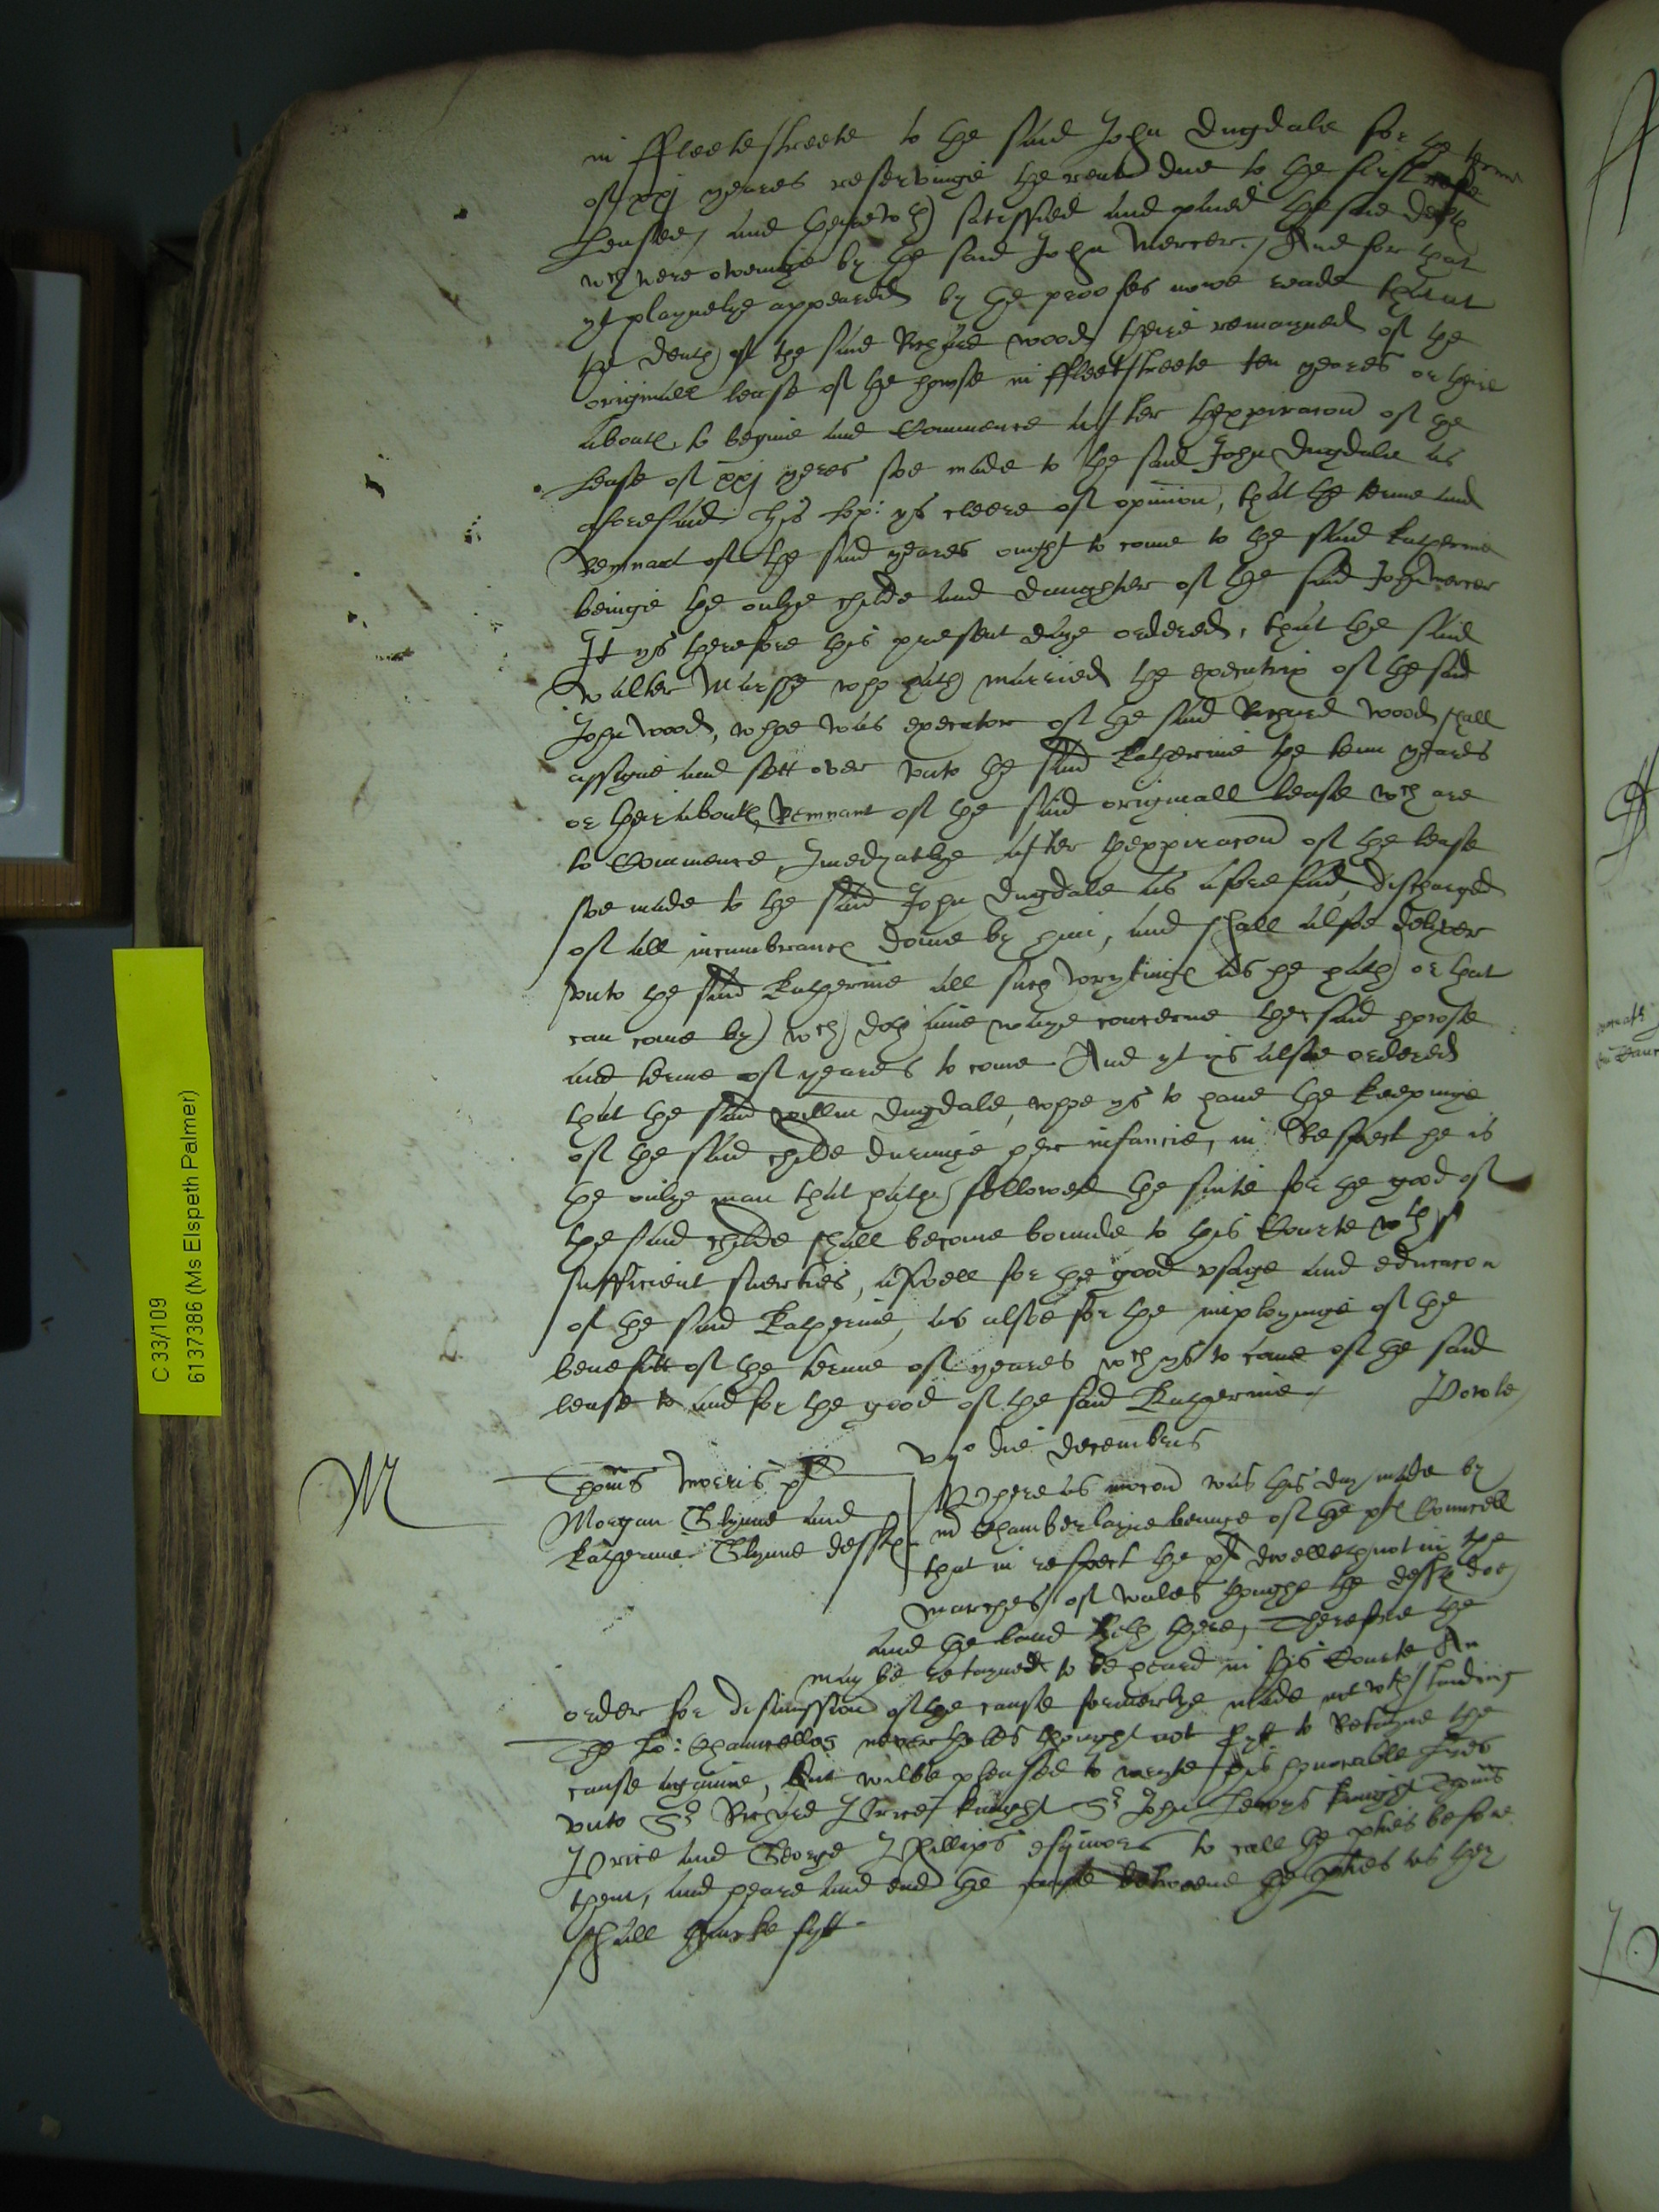 in ffleetestreete to the said John Dugdale for the terme
of xxj yeares reservinge the rent due to the first
Leassee, and therewth satisfied and paied the said debts
wch were oweinge by the said John Mercer, And for that
yt playnelye appeared by the proofes nowe reade that at
the death of the said Richard wood there remayned of the
originall lease of the howse in ffleetstreete ten yeares or there
aboutes, to begine and Commence after thexpiracon of the
Lease of xxj yeres soe made to the said John Dugdale as
aforesaid. this Lop: ys cleere of opinion, that the terme and
Remnant of the said yeares ought to come to the said Katherine
beinge the onlye childe and daughter of the said John Mercer
It ys therefore this present daye ordered, that the said
walter Marshe who hath married the executrix of the said
John wood, whoe was executor of the said Richard wood shall
assigne and sett over vnto the said Katherine the tenn yeares
or thereaboutes Remnant of the said originall lease wch are
to Commence Imedyatlye after thexpiracon of the lease
soe made to the said John Dugdale as aforesaid, discharged
of all incumbrances donne by him, and shall alsoe delyver
vnto the said Katherine all such wrytinges as he hath or that
can come by wch doth anie waye concerne the said howse
and terme of yeares to come And yt ys alsoe ordered
that the said willm Dugdale, whoe ys to haue the keepinge
of the said childe duringe her infancie, in Respect he is
the onlye man that hath followed the suite for the good of
the said childe shall become bounde to this Courte wth
sufficient suerties, aswell for the good vsage and educacon
of the said Katherine, as alsoe for the imployinge of the
benefitt of the terme of yeares wch ys to come of the said
lease to and for the good of the said Katherine.
Powle
vijo die Decembris
M
Thomas Morris pl
Morgan Glynne and
Katherine Glynne deftes
Whereas mocon was this day made by
mr Chamberlayne beinge of the pls Councell
that in respect the pl dwelleth not in the
marches of wales though the deftes doe
and the land lyeth there, Therefore the
may be retayned to be heard in this Courte, An
order for dismission of the cause formerlye made notwthstanding
The Lo: Chauncellor neverthelesse thought not fytt to Retayne the
cause againe, But wilbe pleased to wryte his honorable lres
vnto Sr Richard Price knight Sr John Lewys knight Thomas
Price and George Phillips esquiors to call the pties before
them, and heare and end the cause betweene the pties as they
shall thincke fytt.
C 33/109
6137386 (Ms Elspeth Palmer)